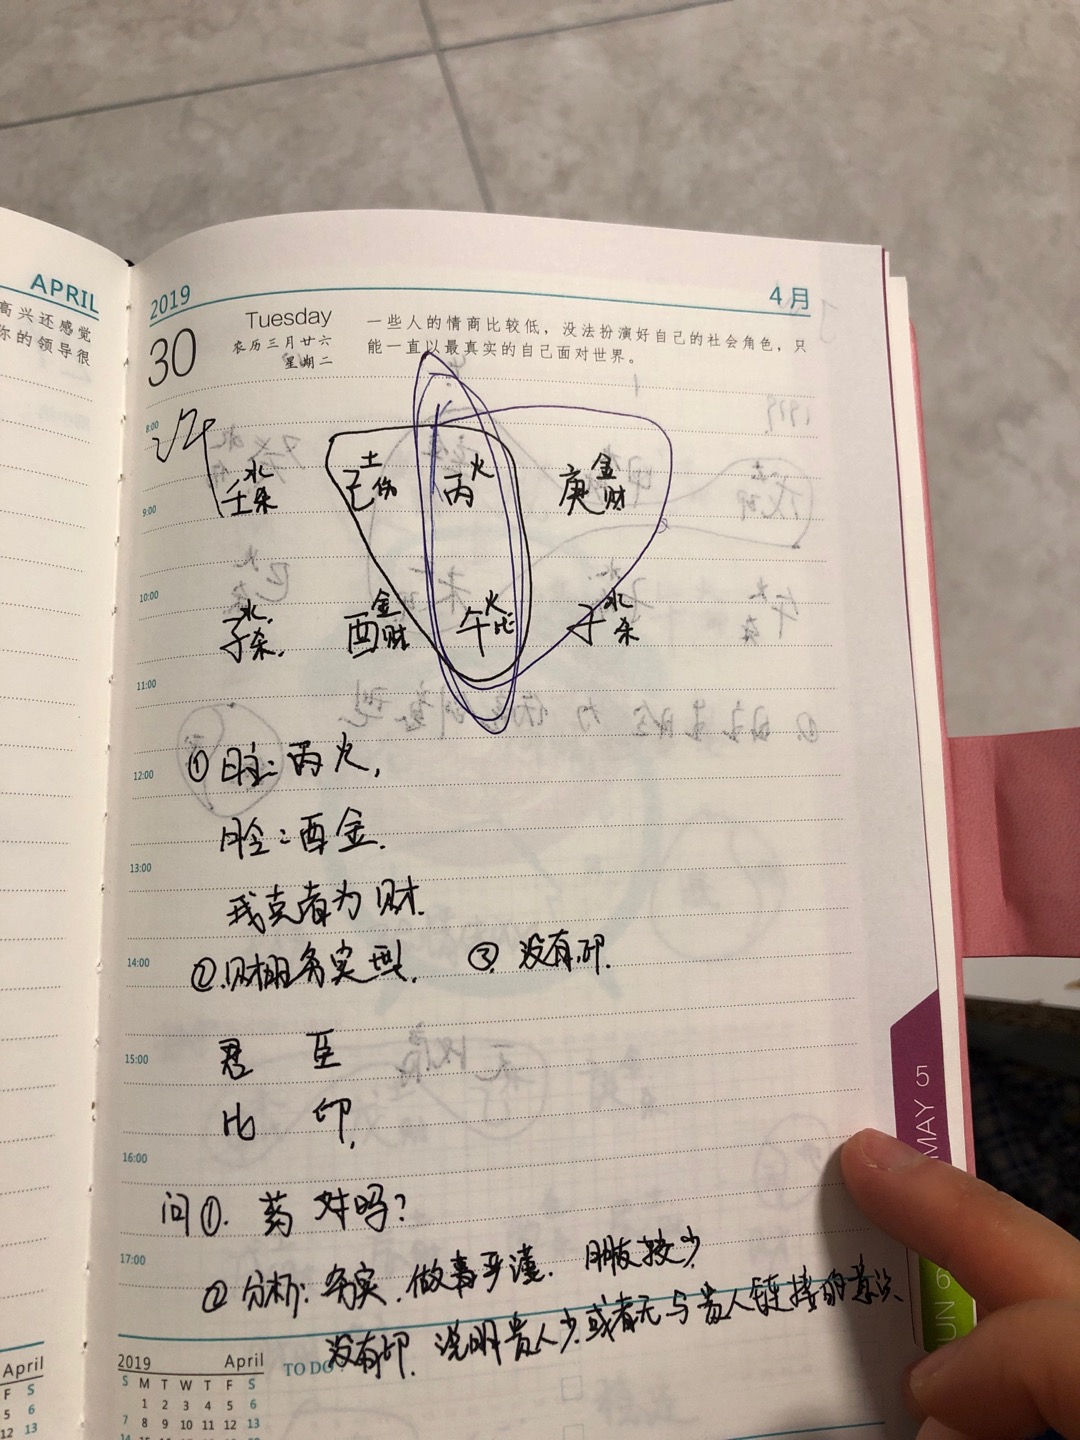 APRIL
高兴还感觉
你的领导很
2019
4月
30
Tuesday
农历三月廿六
星期二
一些人的情商比较低，没法扮演好自己的社会角色，只
能一直以最真实的自己面对世界。
8:00
水 土 火 金
壬杀 己伤 丙 庚财
9:00
10:00
水 金 火 水
子杀. 酉财 午比 子杀
11:00
①日主：丙火，
12:00
月令：酉金.
13:00
我克者为财.
②.财旺务实型. ③.没有印.
14:00
君 臣
15:00
比 印.
16:00
问①. 药对吗？
17:00
②分析：务实.做事严谨. 朋友较少
没有印.说明贵人少.或者无与贵人链接的意识
2019 April
TO DO
S M T W T F S
1 2 3 4 5 6
7 8 9 10 11 12 13
April
F S
5 6
12 13
5
MAY
6
JUN